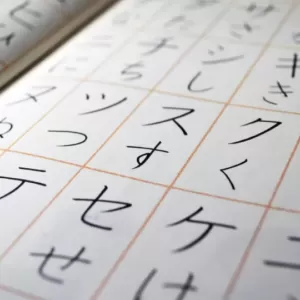 キき
クく
ケけ
サさ
シし
スす
セせ
チち
ツつ
テ